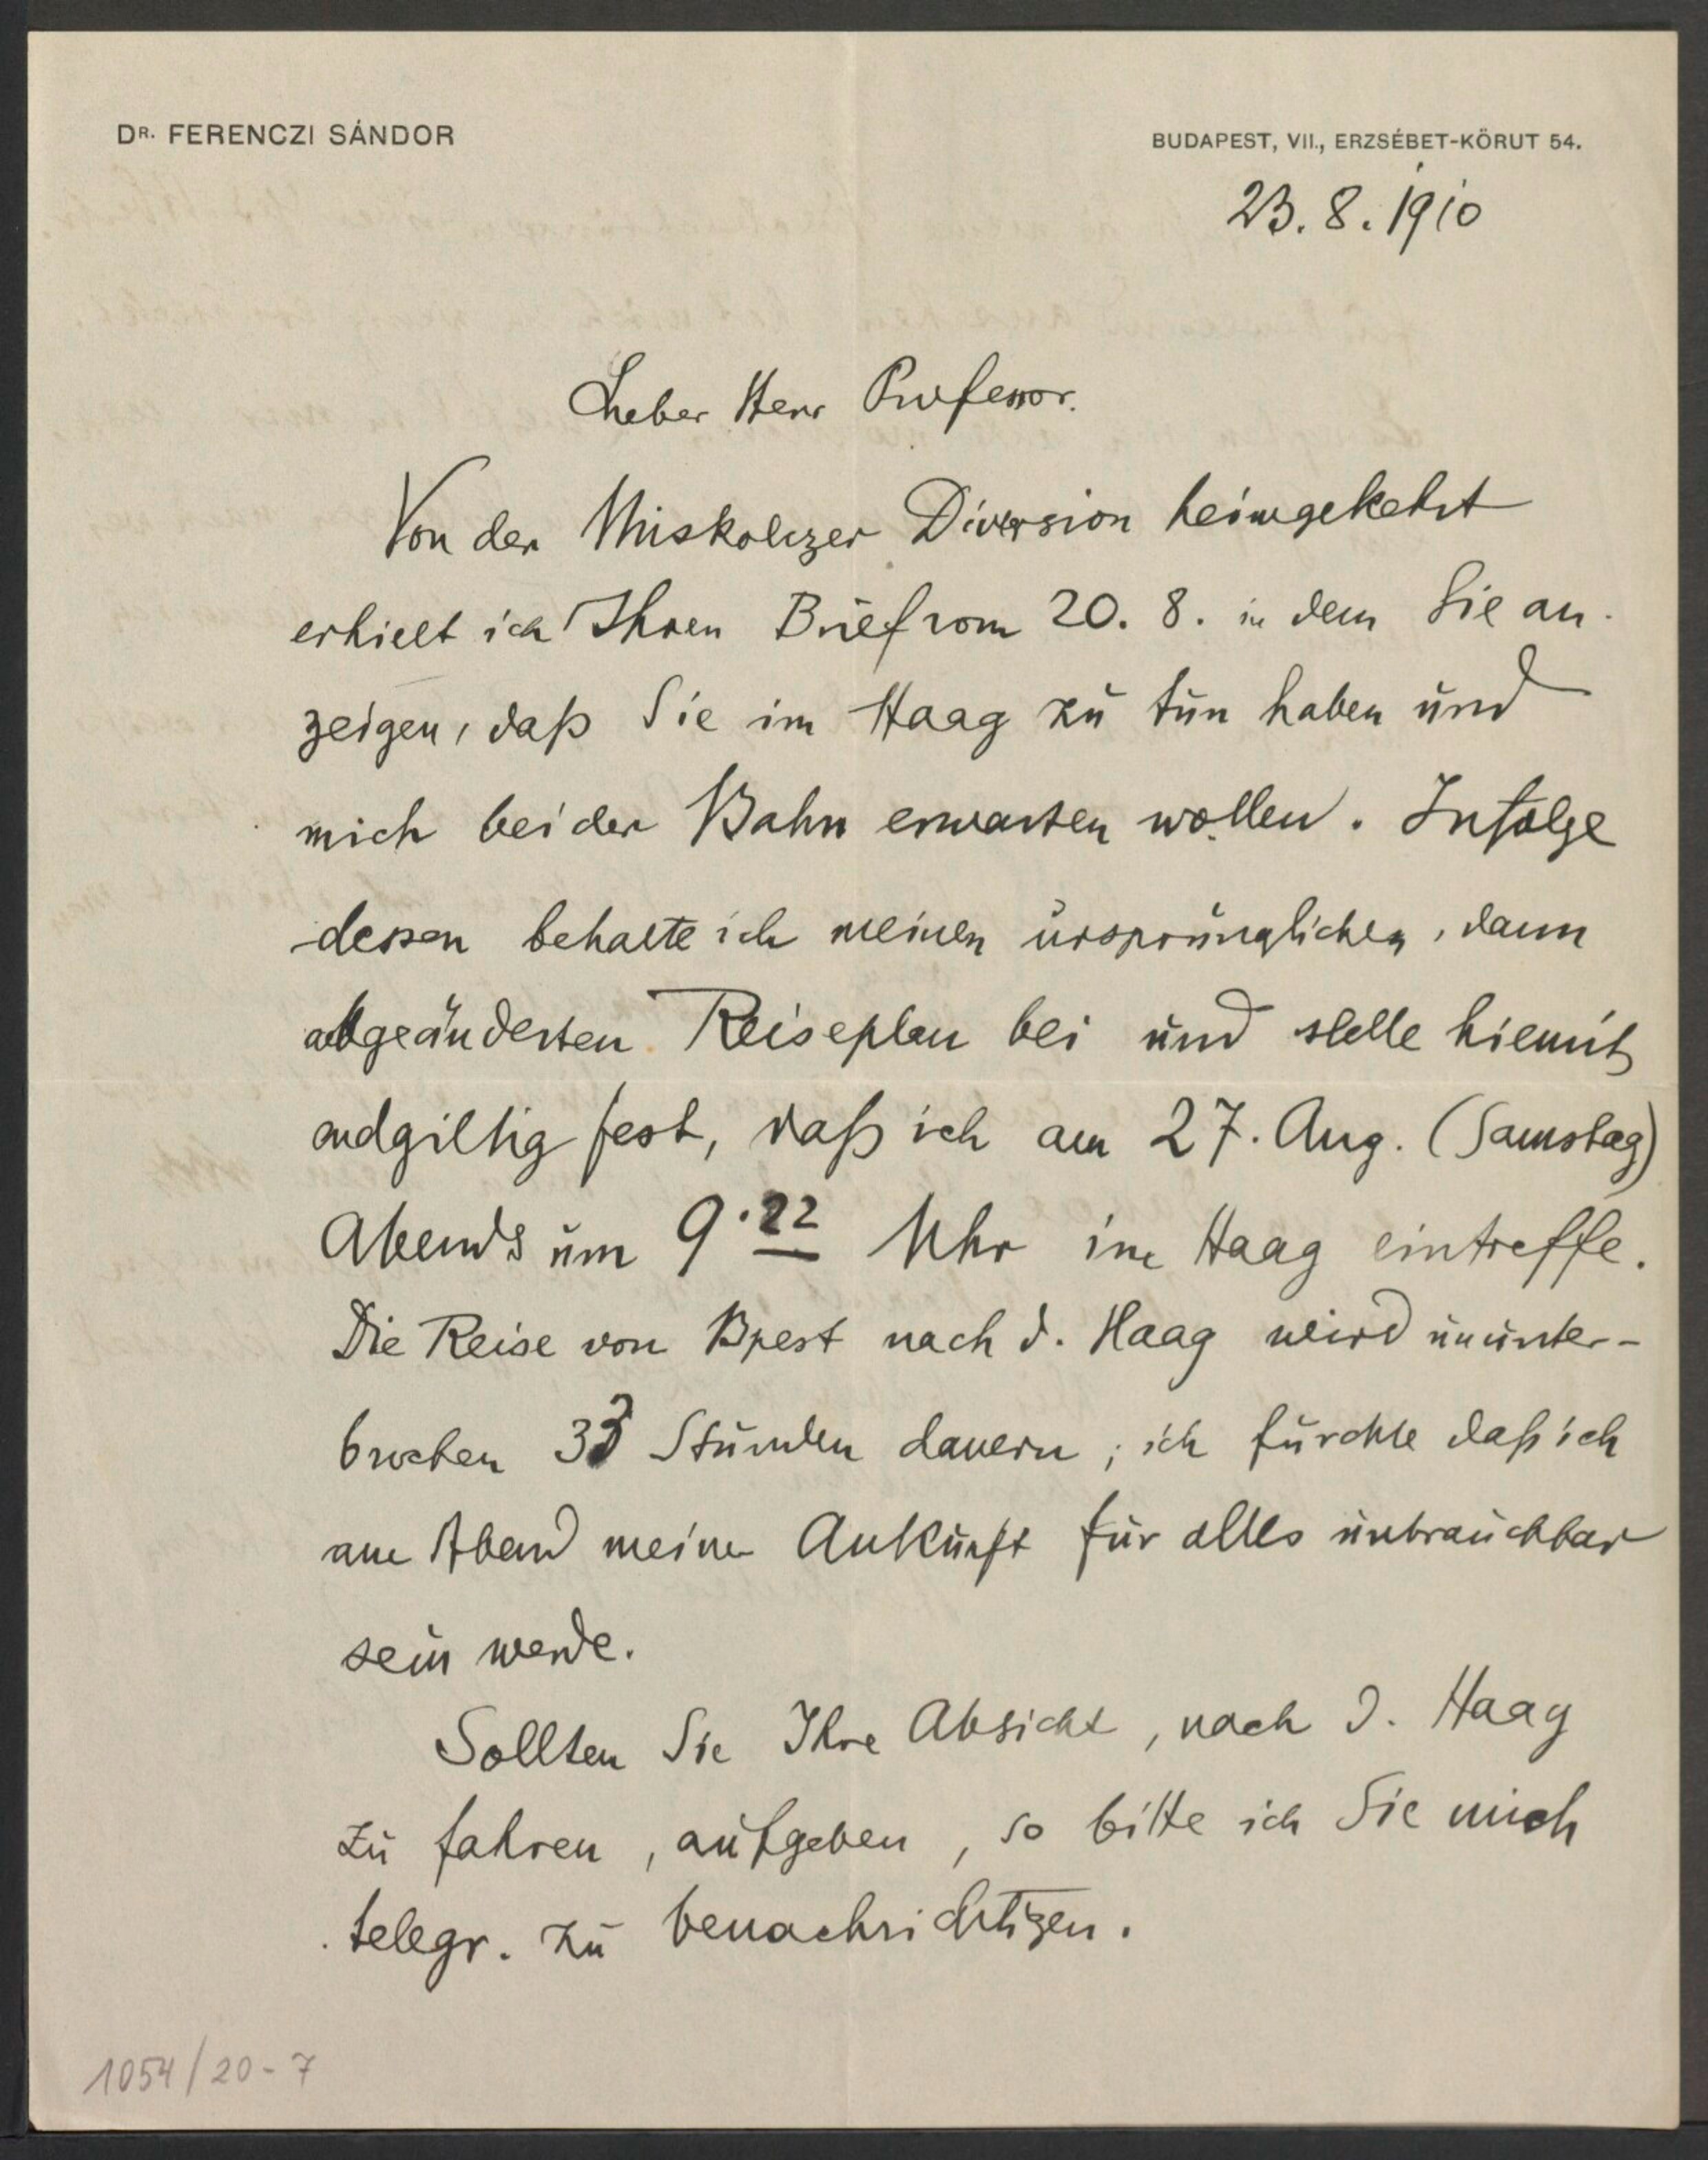 DR. FERENCZI SÁNDOR
BUDAPEST, VII., ERZSÉBET-KÖRUT 54.
23. 8. 1910
Lieber Herr Professor.
Von der Miskolczer Diversion heimgekehrt
erhielt ich Ihren Brief vom 20. 8. in dem Sie an-
zeigen, daß Sie im Haag zu tun haben und
mich bei der Bahn erwarten wollen. Infolge
dessen behalte ich meinen ursprünglichen, dann
abgeänderten Reiseplan bei und stelle hiemit
endgiltig fest, daß ich am 27. Aug. (Samstag)
Abends um 9.22 Uhr im Haag eintreffe.
Die Reise von Bpest nach d. Haag wird ununter-
brochen 33 Stunden dauern; ich fürchte daß ich
am Abend meiner Ankunft für alles unbrauchbar
sein werde.
Sollten Sie Ihre Absicht, nach d. Haag
zu fahren, aufgeben, so bitte ich Sie mich
telegr. zu benachrichtigen.
1054/20-7